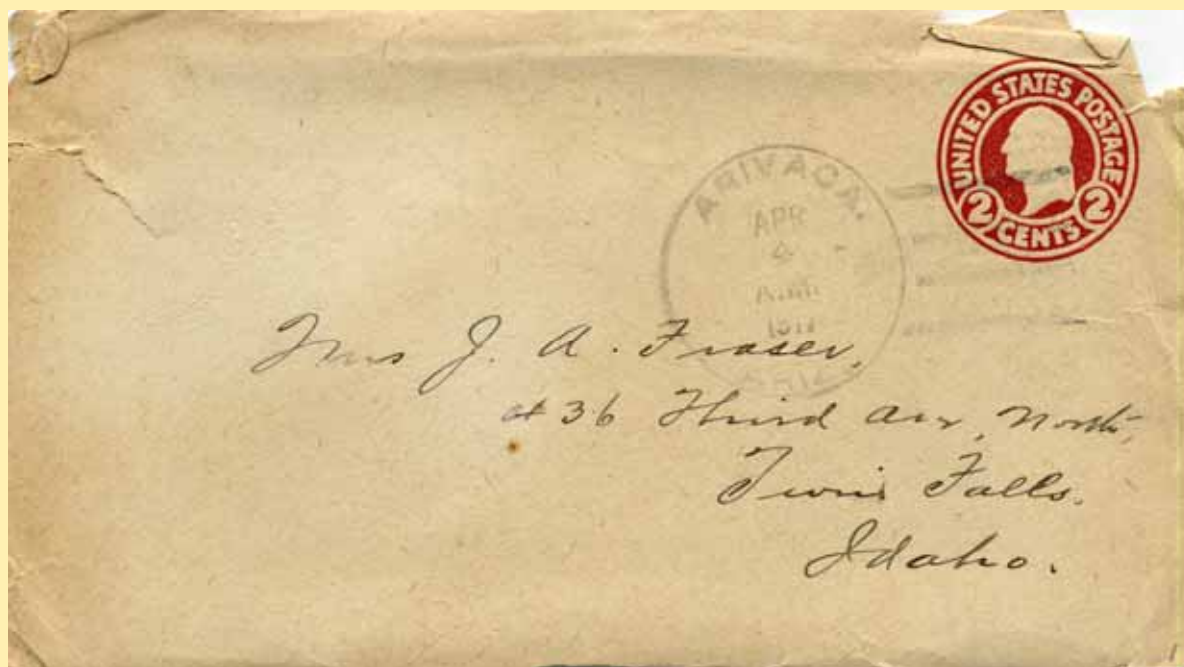 UNITED STATES POSTAGE
2 CENTS 2
ARIVACA.
APR
4
1917
ARIZ
Mrs J. A. Fraser,
436 Third Ave, North,
Twin Falls.
Idaho.